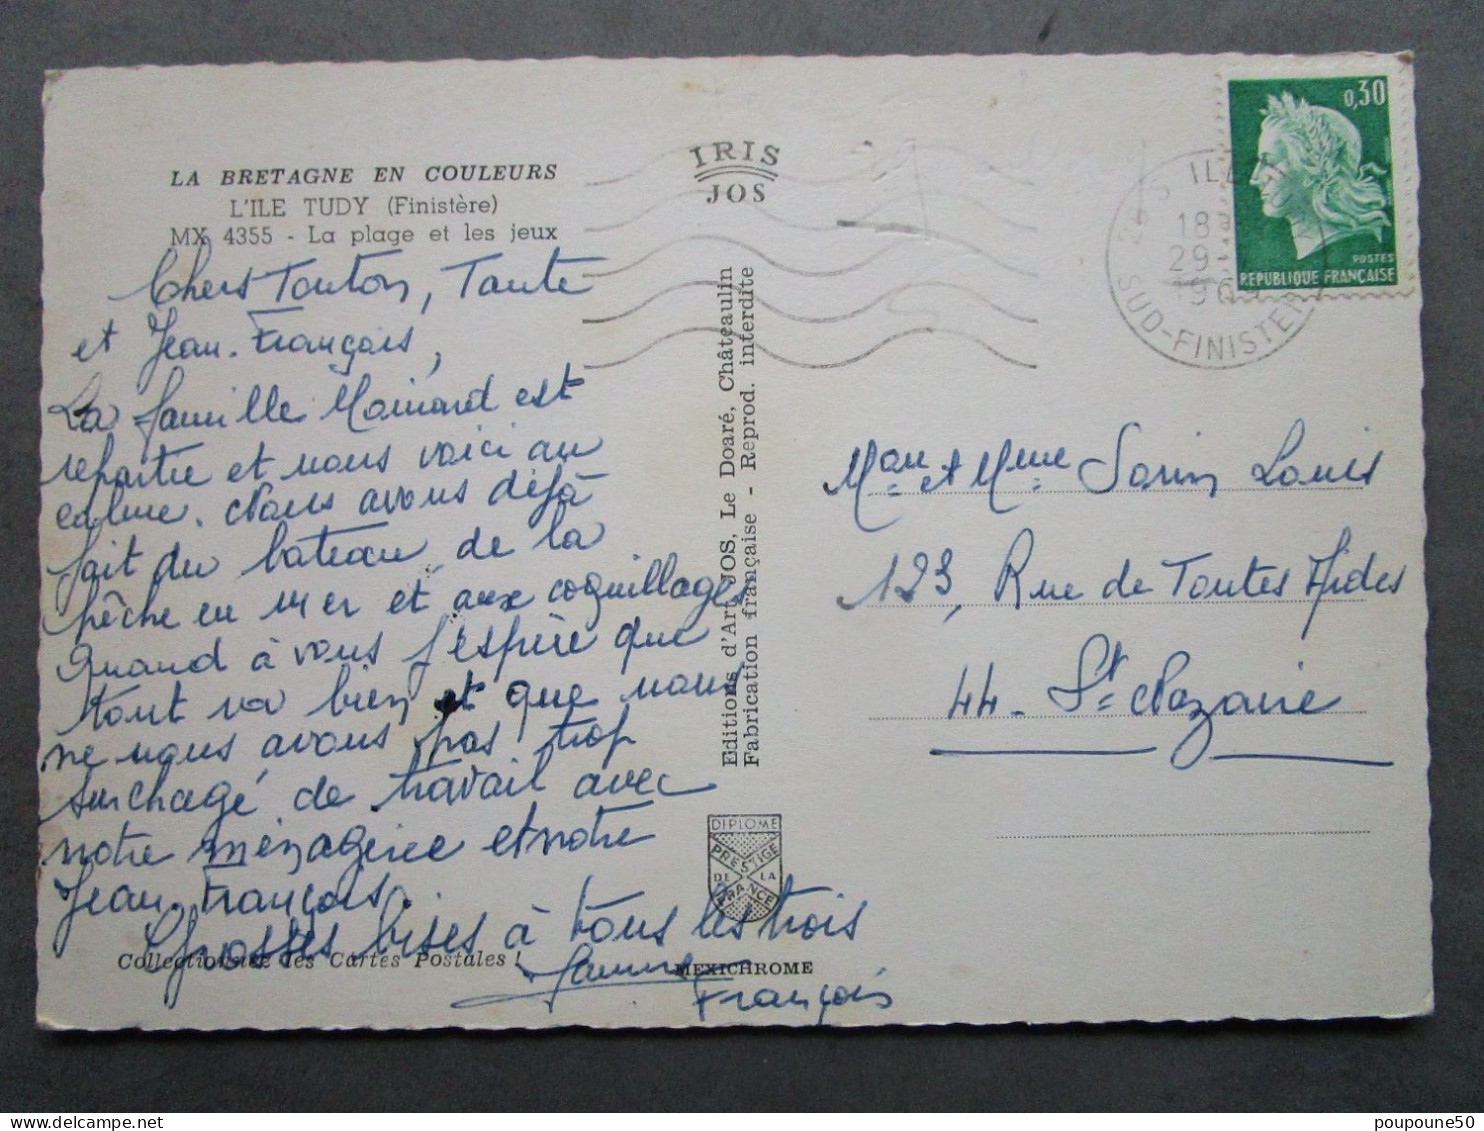 LA BRETAGNE EN COULEURS
L'ILE TUDY (Finistère)
MX 4355 - La plage et les jeux
Chers Tonton, Tante
et Jean-François,
La famille est
repartie et nous voici au
calme. Nous avons déjà
fait du bateau, de la
pêche en mer et aux coquillages
Quand à vous j'espère que
tout va bien et que vous
ne vous avons pas trop
surchagé de travail avec
notre ménagerie et notre
Jean-François.
Grosses bises à tous les trois
François
Collectionnez les Cartes Postales !
IRIS
JOS
Editions d'Art JOS, Le Doaré, Châteaulin
Fabrication française - Reprod. interdite
DIPLOME
PRESTIGE
DE LA
FRANCE
MEXICHROME
0,30
POSTES
REPUBLIQUE FRANÇAISE
18
29
196
SUD-FINISTERE
et Mme Sorin Louis
123, Rue de Toutes Aides
44 - St Nazaire
poupoune50